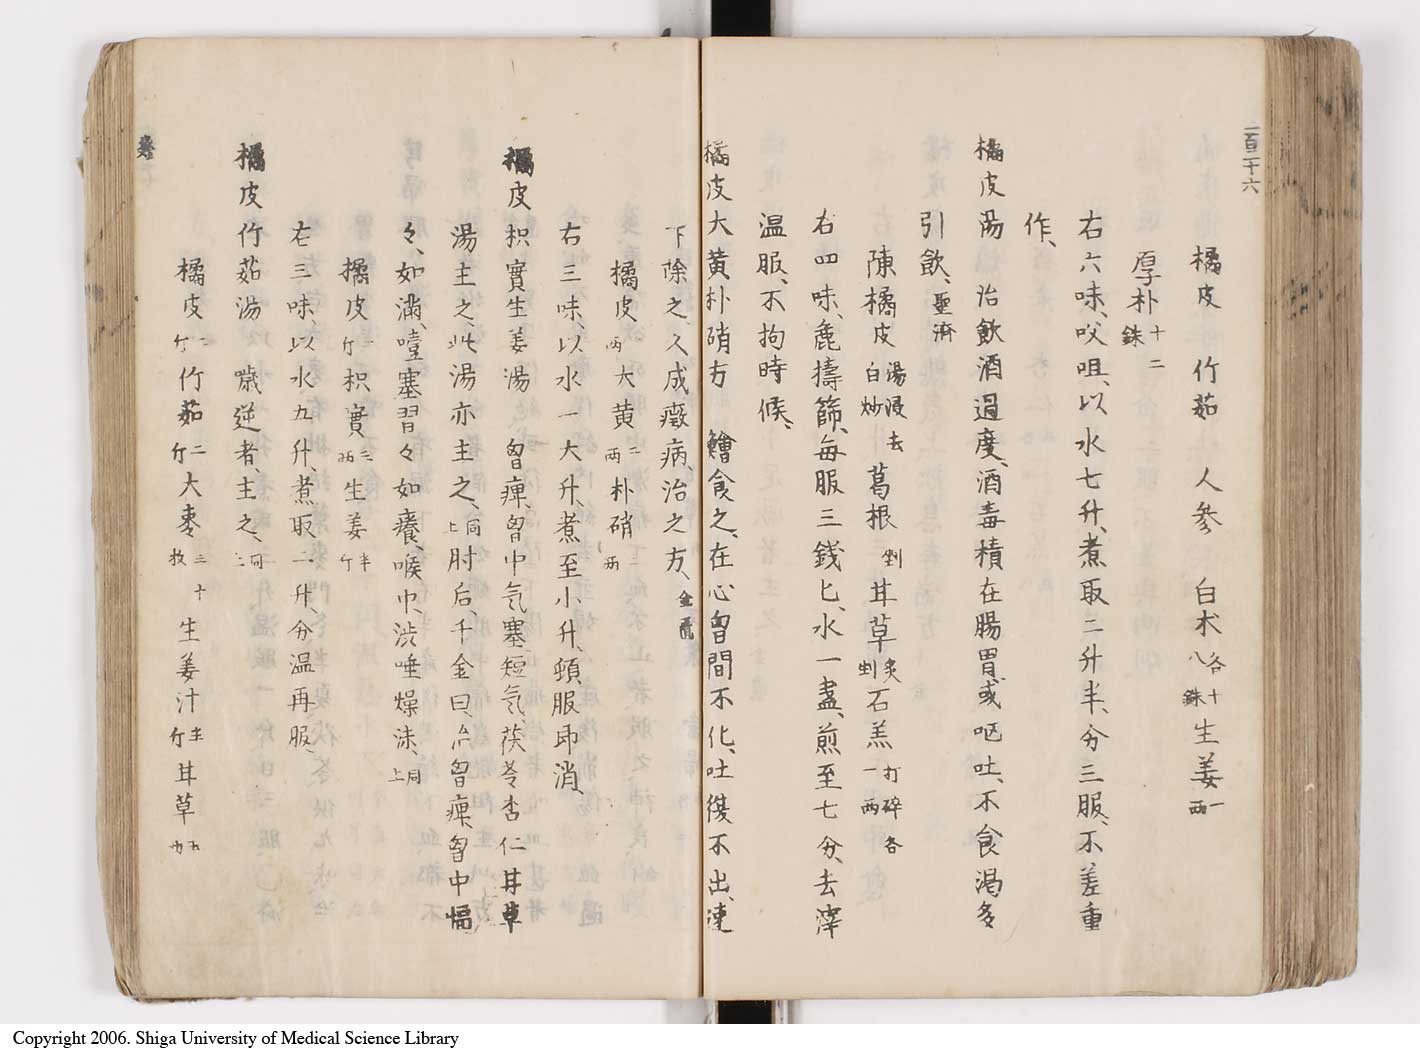 一百二十六
橘皮 竹茹 人参 白朮各十八銖 生姜一両
厚朴十二銖
右六味、㕮咀、以水七升、煮取二升半、分三服、不差重
作、
橘皮湯 治飲酒過度、酒毒積在腸胃、或呕吐、不食渇多
引飲、聖済
陳橘皮湯浸去白炒 葛根剉 甘草炙剉 石羔打碎各一両
右四味、麁擣篩、毎服三銭匕、水一盞、煎至七分、去滓
温服、不拘時候、
橘皮大黄朴硝方 鱠食之、在心胷間不化、吐復不出、速
下除之、久成癥病、治之方、金匱
橘皮一両 大黄二両 朴硝二両
右三味、以水一大升、煮至小升、頓服即消、
橘皮枳實生姜湯 胷痺、胷中気塞短気、茯苓杏仁甘草
湯主之、此湯亦主之、同上 肘后、千金曰、治胷痺、胷中愊
々、如満、噎塞習々如癢、喉中渋唾燥沫、同上
橘皮一斤 枳實三両 生姜半斤
右三味、以水九升、煮取二升、分温再服、
橘皮竹茹湯 噦逆者、主之、同上
橘皮一斤 竹茹二斤 大棗三十枚 生姜汁半斤 甘草五両